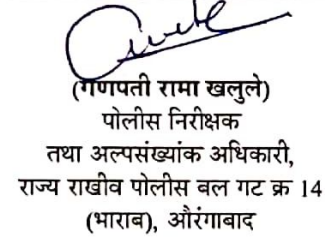 (गणपती रामा खलुले)
पोलीस निरीक्षक
तथा अल्पसंख्यांक अधिकारी,
राज्य राखीव पोलीस बल गट क्र 14
(भाराब), औरंगाबाद